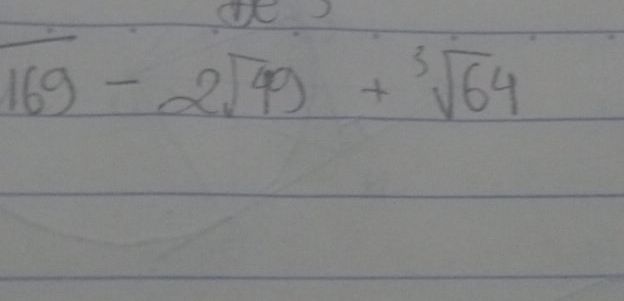 √169 - 2√49 + ³√64